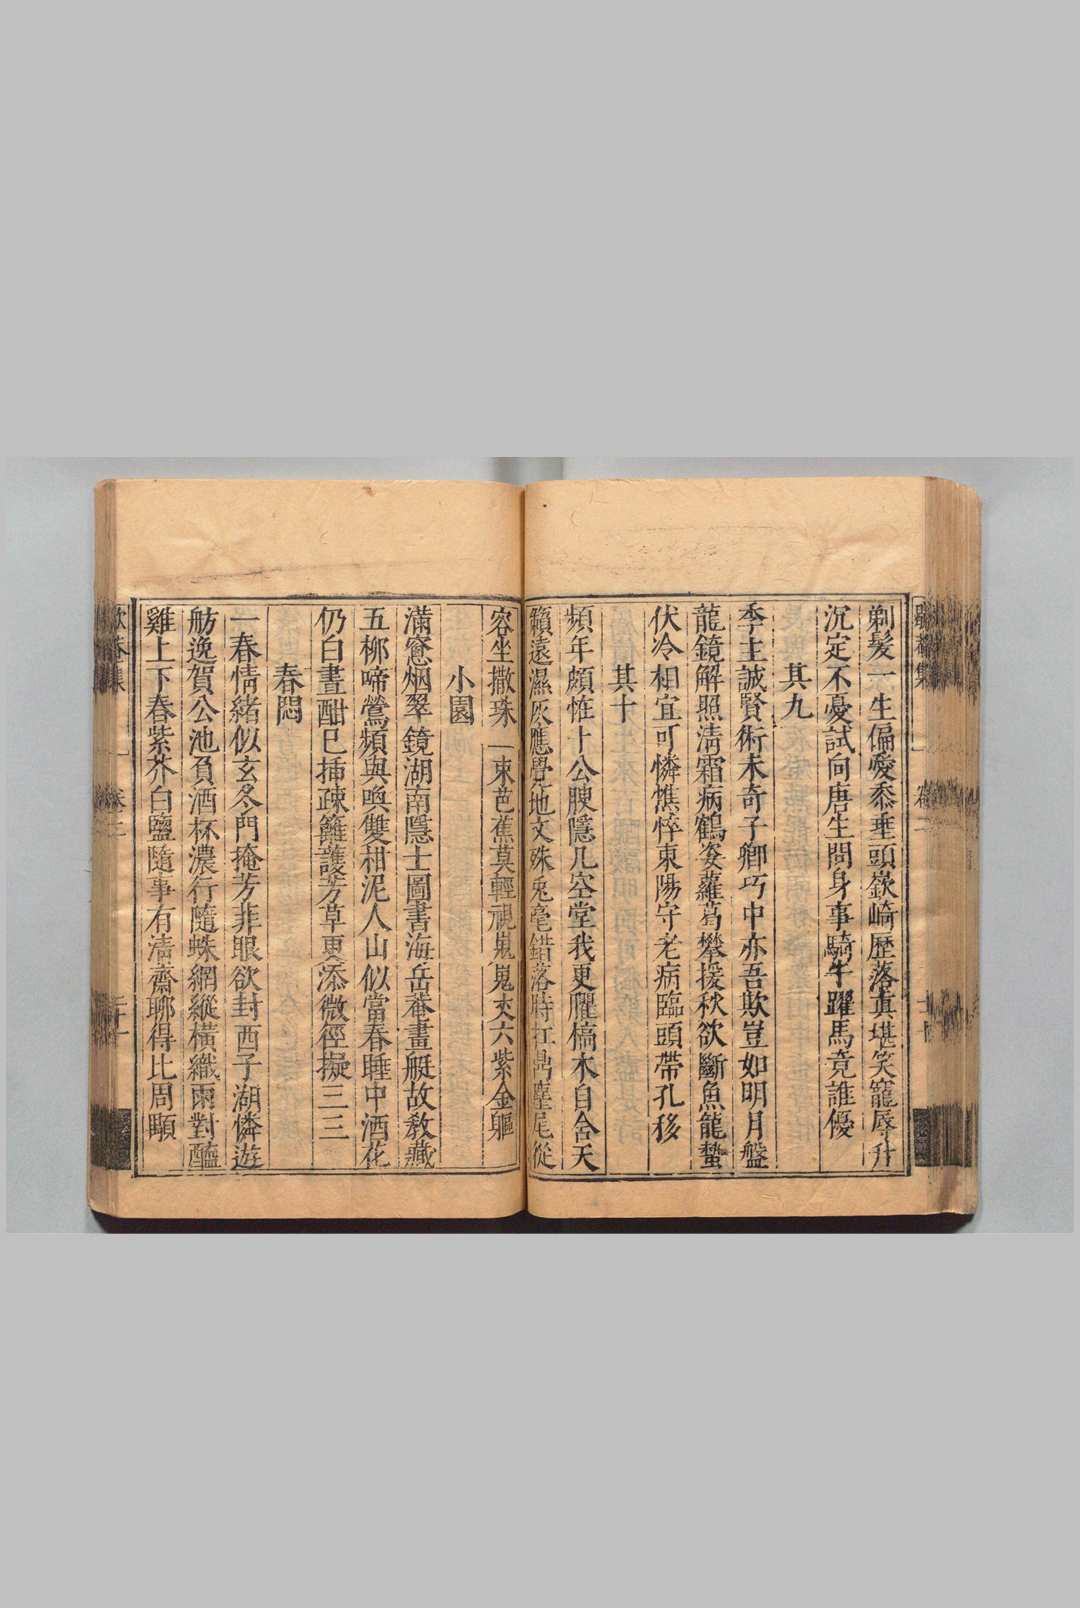 剃髮一生偏愛黍垂頭嶔崎歷落真堪笑寵辱升
沉定不憂試向唐生問身事騎牛躍馬竟誰優
其九
季主誠賢術未奇子卿巧中亦吾欺豈如明月盤
龍鏡解照清霜病鶴姿蘿蔦攀援秋欲斷魚龍蟄
伏冷相宜可憐憔悴東陽守老病臨頭帶孔移
其十
頻年頗怪十公腴隱几空堂我更臞槁木自含天
籟遠濕灰應學地文殊兔毫錯落時扛鼎麈尾從
容坐撒珠一束芭蕉莫輕視嵬嵬丈六紫金軀
小園
滿窻烟翠鏡湖南隱士圖書海岳菴畫艇故教藏
五栁啼鶯頻與喚雙柑泥人山似當春睡中酒花
仍白晝酣已揷疎籬護芳草更添微徑擬三三
春悶
一春情緒似玄冬門掩芳菲眼欲封西子湖憐遊
舫逸賀公池負酒杯濃行隨蛛網縱橫織雨對醯
雞上下舂紫芥白鹽隨事有清齋聊得比周顒